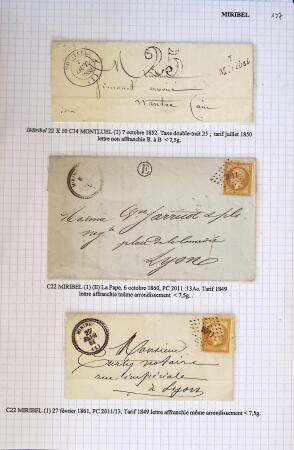 MIRIBEL
137
25
Nantua (Ain
1Miribel 22 X 10 C14 MONTLUEL (1) 7 octobre 1852. Taxe double-trait 25 ; tarif juillet 1850
lettre non affranchie B. à B < 7,5g.
E
place de la comédie
Lyon
C22 MIRIBEL (1) (E) La Pape, 6 octobre 1860, PC 2011 :13Ac. Tarif 1849
lettre affranchie même arrondissement < 7,5g. .
MIRIBEL
(1)
Monsieur
notaire
rue impériale
à Lyon
C22 MIRIBEL (1) 27 février 1861, PC 2011/13. Tarif 1849 lettre affranchie même arrondissement < 7,5g.